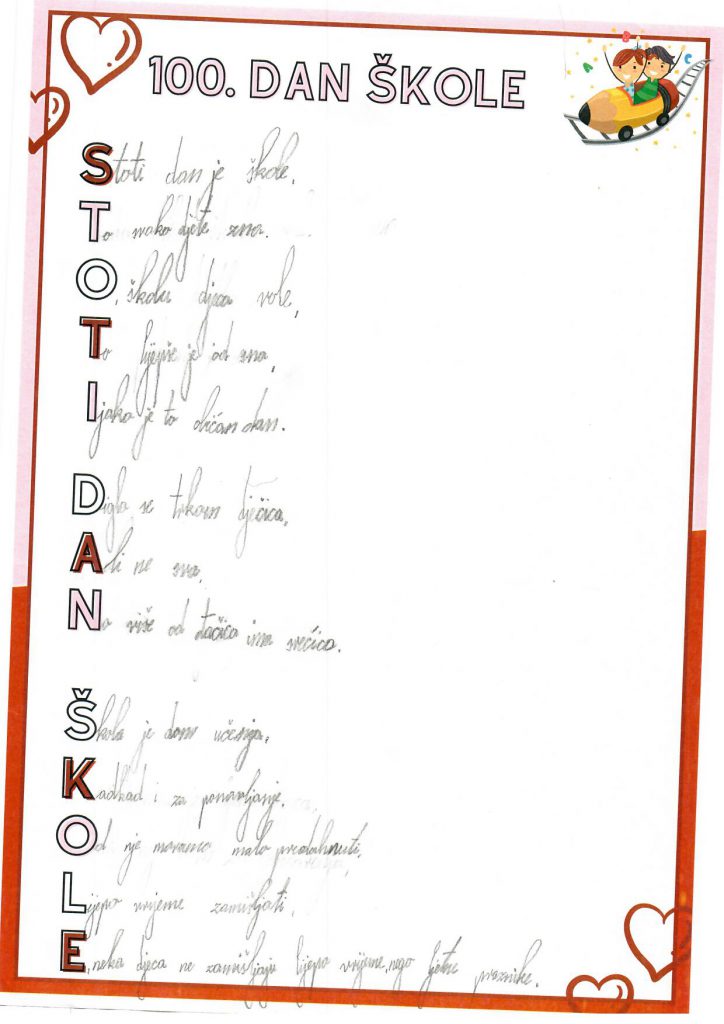 100. DAN ŠKOLE
A B C
Stoti dan je škole,
To svako djete zna.
O, školu djeca vole,
To ljepše je od sna,
Ijako je to običan dan.
Digla se trkom dječica,
Ali ne sva,
No više od đačića ima srećica.
Škola je dom učenja,
Kadkad i za ponavljanje.
Od nje moramo malo predahnuti,
Lijepo vrijeme zamišljati,
E, neka djeca ne zamišljaju lijepo vrijeme, nego ljetne praznike.